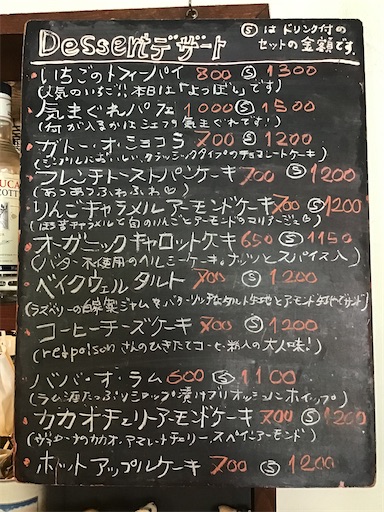 Dessertデザート
Ⓢはドリンク付の
セットの金額です。
・いちごのトフィーパイ 800 Ⓢ 1300
(人気のいちご!!本日は「よつぼし」です)
・気まぐれパフェ 1000 Ⓢ 1500
(何が入るかはシェフの気まぐれです!)
・ガトー・オ・ショコラ 700 Ⓢ 1200
(シンプルにおいしい、クラッシックタイプのチョコレートケーキ)
・フレンチトーストパンケーキ 700 Ⓢ 1200
(あつあつふわふわ♡)
・りんごキャラメルアーモンドケーキ 700 Ⓢ 1200
(ほろ苦キャラメルと旬のりんごとアーモンドのコリアージュ♡)
・オーガニックキャロットケーキ 650 Ⓢ 1150
(バター不使用のヘルシーケーキ。ナッツとスパイス入)
・ベイクウェルタルト 700 Ⓢ 1200
(ラズベリーの自家製ジャムをバターリッチなタルト生地とアーモンド生地でサンド)
・コーヒーチーズケーキ 700 Ⓢ 1200
(re:poisonさんのひきたてコーヒー粉入の大人味!)
・ババ・オ・ラム 600 Ⓢ 1100
(ラム酒たっぷりシロップ漬けブリオッシュ ホイップ)
・カカオチェリーアーモンドケーキ 700 Ⓢ 1200
カカオ、アマレットチェリー、スペインアーモンド)
・ホットアップルケーキ 700 Ⓢ 1200